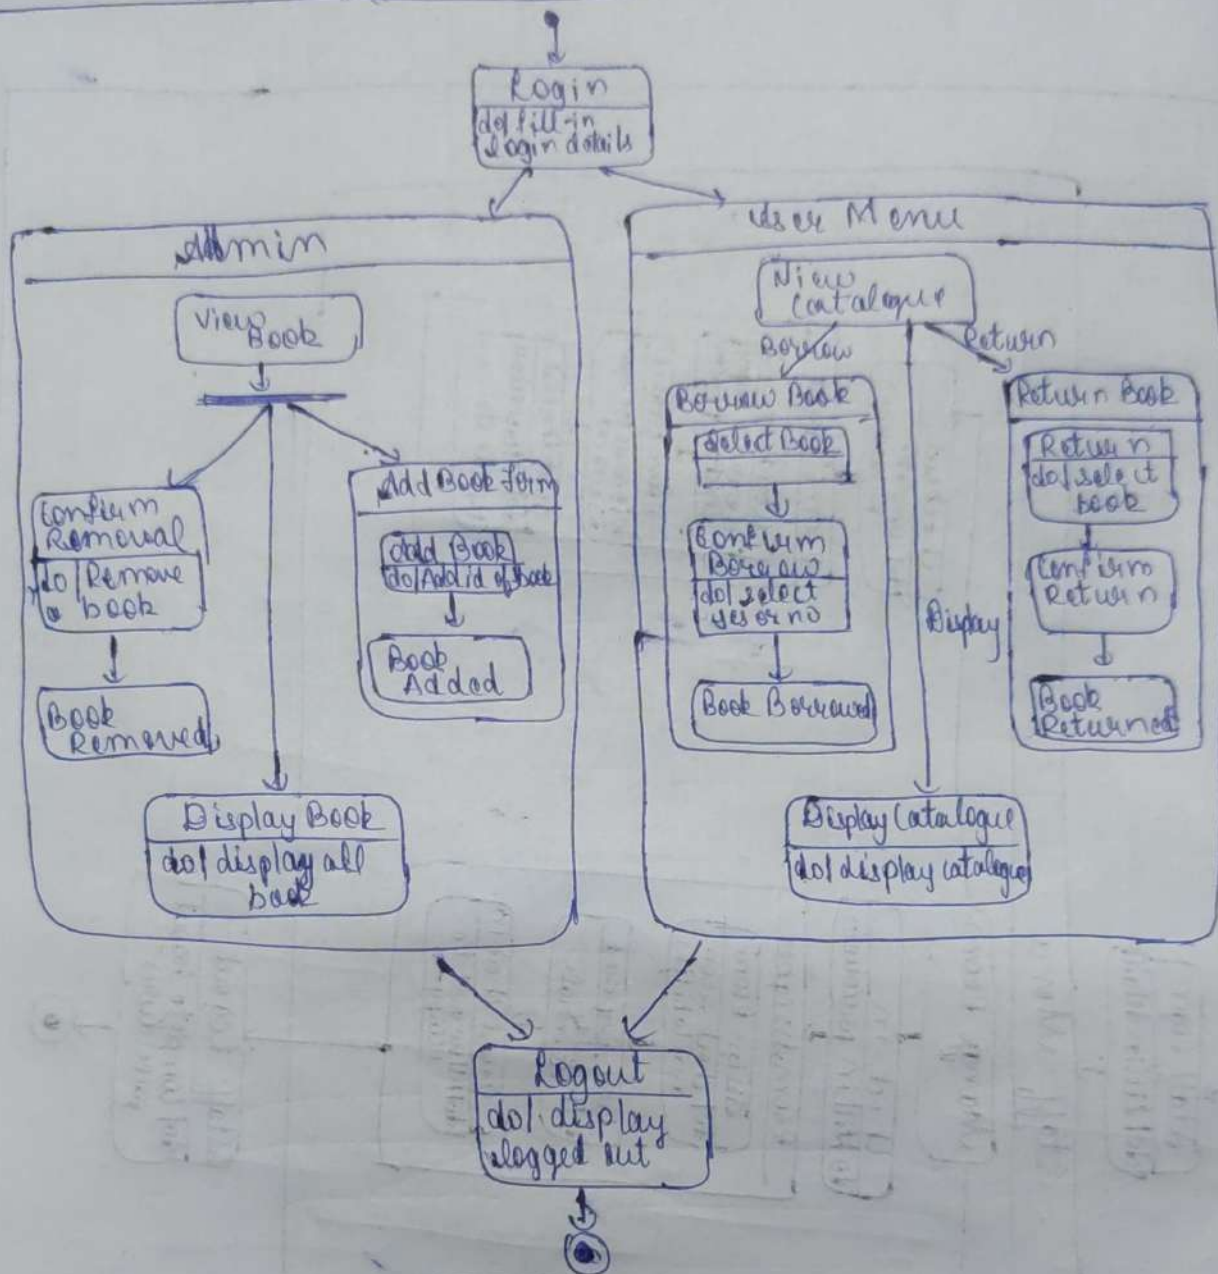 Login
do/fill-in
login details
Admin
View
Book
Confirm
Removal
do/Remove
a book
Book
Removed
Add Book Form
Add Book
do/Add id of Book
Book
Added
Display Book
do/display all
book
User Menu
View
Catalogue
Borrow
Return
Display
Borrow Book
Select Book
Confirm
Borrow
do/select
yes or no
Book Borrowed
Return Book
Return
do/select
book
Confirm
Return
Book
Returned
Display Catalogue
do/display catalogue
Logout
do/display
logged out